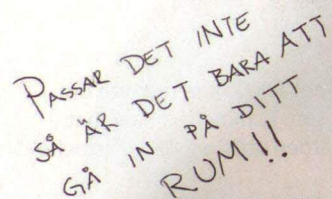 PASSAR DET INTE
SÅ ÄR DET BARA ATT
GÅ IN PÅ DITT
RUM!!